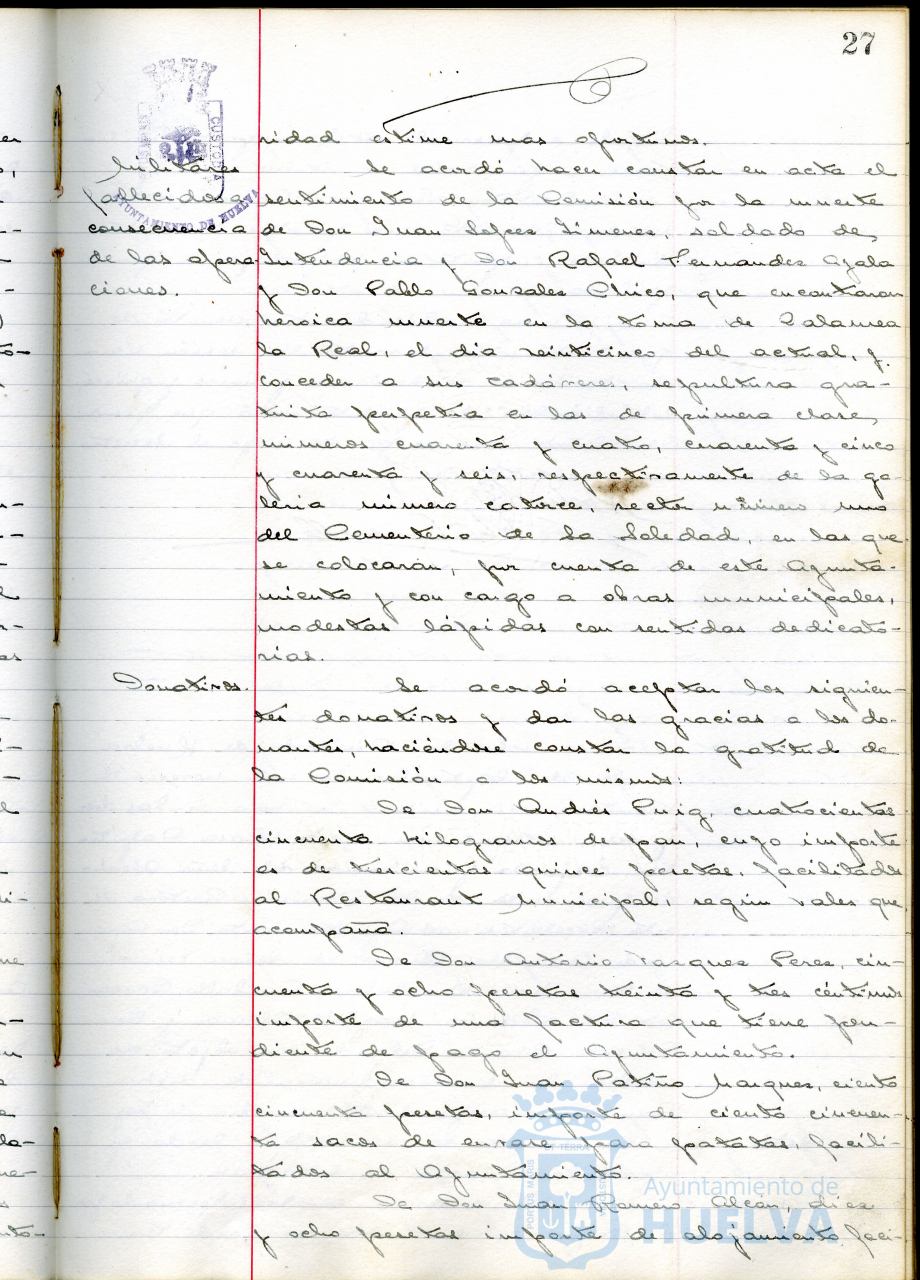 27
ridad estime mas oportunos.
Militares
fallecidos a
consecuencia
de las opera-
ciones.
Se acordó hacer constar en acta el
sentimiento de la Comisión por la muerte
de Don Juan Lopez Gimenez, soldado de
Intendencia y Don Rafael Fernandez Ayala
y Don Pablo Gonzalez Chico, que encontraron
heroica muerte en la toma de Zalamea
la Real, el dia veinticinco del actual, y
conceder a sus cadáveres, sepultura gra-
tuita perpetua en las de primera clase,
números cuarenta y cuatro, cuarenta y cinco
y cuarenta y seis, respectivamente de la ga-
leria número catorce, sector número uno
del Cementerio de La Soledad, en las que
se colocarán, por cuenta de este Ayunta-
miento y con cargo a obras municipales,
modestas lápidas con sentidas dedicato-
rias.
Donativos.
Se acordó aceptar los siguien-
tes donativos y dar las gracias a los do-
nantes, haciéndose constar la gratitud de
la Comisión a los mismos:
De Don Andrés Puig, cuatrocientos
cincuenta kilogramos de pan, cuyo importe
es de trescientas quince pesetas, facilitados
al Restaurant Municipal, según vales que
acompaña.
De Don Antonio Vazquez Perez, cin-
cuenta y ocho pesetas treinta y tres céntimos
importe de una factura que tiene pen-
diente de pago el Ayuntamiento.
De Don Juan Patiño Marquez, ciento
cincuenta pesetas, importe de ciento cincuen-
ta sacos de envase para patatas, facili-
tados al Ayuntamiento.
De Don Juan Romero Alcón, diez
y ocho pesetas importe de alojamiento faci-
AYUNTAMIENTO DE HUELVA
Ayuntamiento de
HUELVA